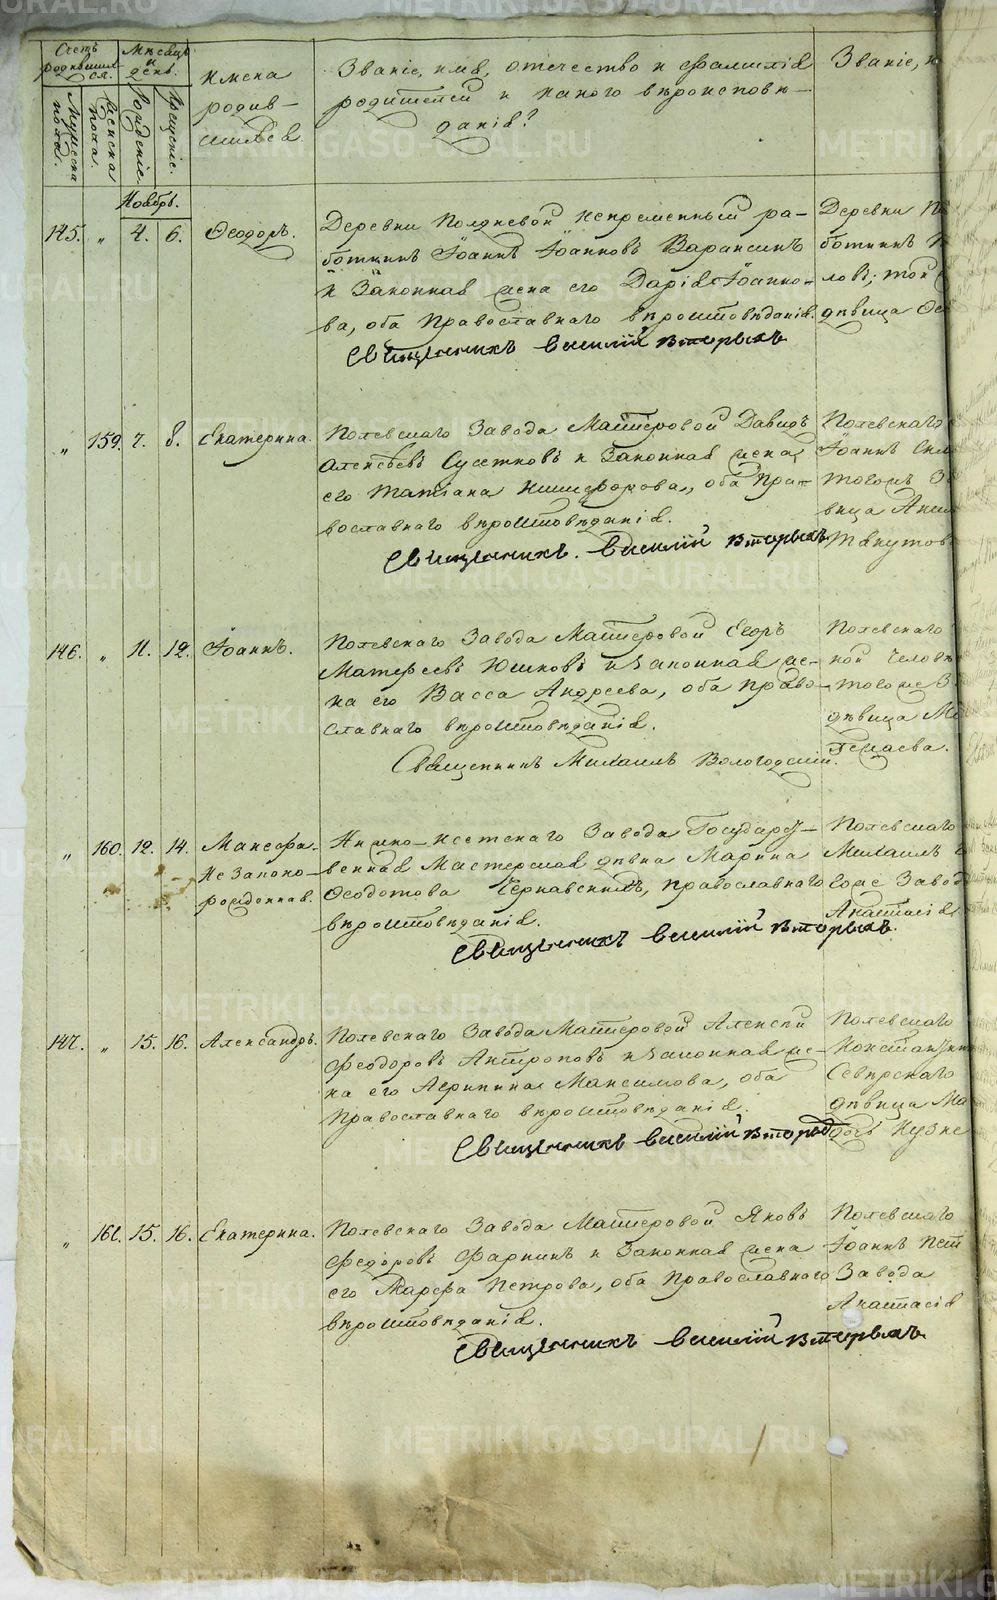 Счетъ родившихся.
Мѣсяцъ и день.
Имена родившихся.
Званіе, имя, отечество и фамилія
родителей и какого вѣроисповѣ-
данія?
Званіе, и
Мужеска пола.
Женска пола.
Рожденіе.
Крещеніе.
Ноябрь.
145. „ 4. 6. Ѳеодоръ.
Деревни Полдневой непременный ра-
ботникъ Іоаннъ Іоанновъ
и Законная жена его Дарія Іоанно-
ва, оба Православнаго вѣроисповѣданія.
Священникъ Василій Вторыхъ
Деревни По
ботникъ
ловъ; той
дѣвица
„ 159. 7. 8. Екатерина.
Полевскаго Завода Мастеровой Давидъ
Алексѣевъ и Законная жена
его Татіана Никифорова, оба Пра-
вославнаго вѣроисповѣданія.
Священникъ. Василій Вторыхъ
Полевскаго
Іоаннъ
тогожъ За
вица
146. „ 11. 12. Іоаннъ.
Полевскаго Завода Мастеровой Егоръ
Матфеевъ Юшковъ и Законная же-
на его Васса Андреева, оба Право-
славнаго вѣроисповѣданія.
Священникъ Михаилъ Вологодскій.
Полевскаго
ной Человѣ
тогоже З
дѣвица
„ 160. 12. 14. Манефа.
Незаконо-
рожденная.
Нижно-Исетскаго Завода Государст-
венная Мастерская дѣвка Марина
Ѳеодотова Чернавскихъ, православнаго
вѣроисповѣданія.
Священникъ Василій Вторыхъ.
Полевскаго
Михаилъ
гоже Завод
Анастасія
147. „ 15. 16. Александръ.
Полевскаго Завода Мастеровой Алексѣй
Феодоровъ Антроповъ и Законная же-
на его Агрипина Максимова, оба
Православнаго вѣроисповѣданія.
Священникъ Василій Вторыхъ
Полевскаго
Константин
Сѣверскаго
дѣвица Ма
дочь Кузне
„ 161. 15. 16. Екатерина.
Полевскаго Завода Мастеровой Яковъ
Федоровъ и Законная жена
его Марфа Петрова, оба Православнаго
вѣроисповѣданія.
Священникъ Василій Вторыхъ
Полевскаго
Іоаннъ Пет
Завода
Анастасія
METRIKI.GASO-URAL.RU